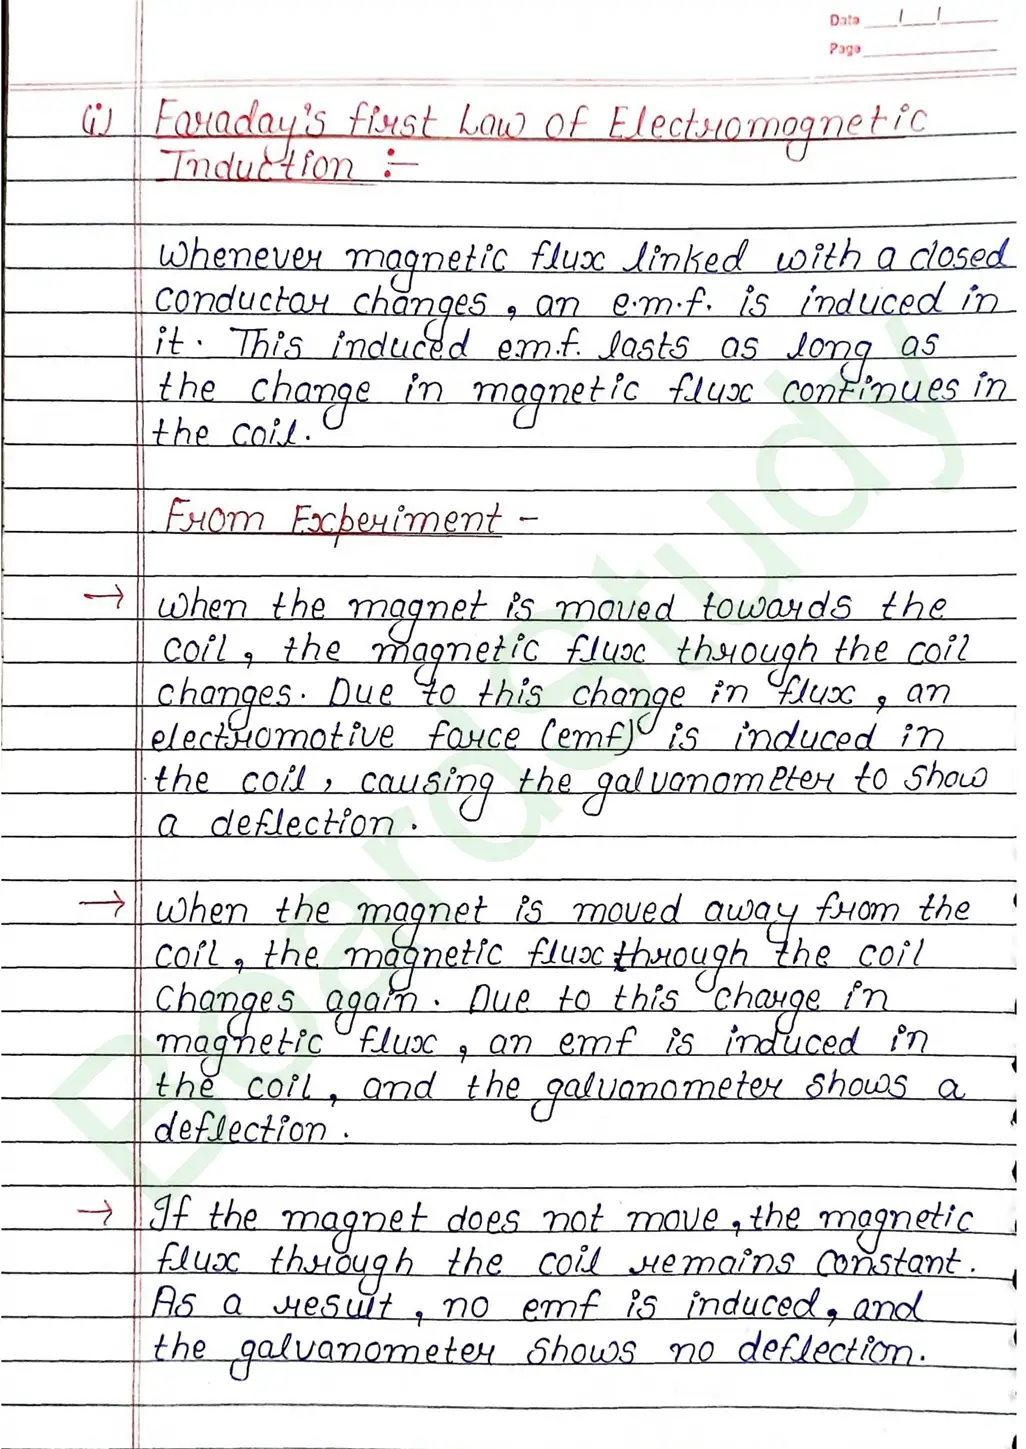 Date / /
Page
(i) Faraday's first Law of Electromagnetic
Induction :-
Whenever magnetic flux linked with a closed
conductor changes, an e.m.f. is induced in
it. This induced e.m.f. lasts as long as
the change in magnetic flux continues in
the coil.
From Experiment -
→ When the magnet is moved towards the
coil, the magnetic flux through the coil
changes. Due to this change in flux, an
electromotive force (emf) is induced in
the coil, causing the galvanometer to show
a deflection.
→ When the magnet is moved away from the
coil, the magnetic flux through the coil
Changes again. Due to this change in
magnetic flux, an emf is induced in
the coil, and the galvanometer shows a
deflection.
→ If the magnet does not move, the magnetic
flux through the coil remains constant.
As a result, no emf is induced, and
the galvanometer shows no deflection.
BoardStudy